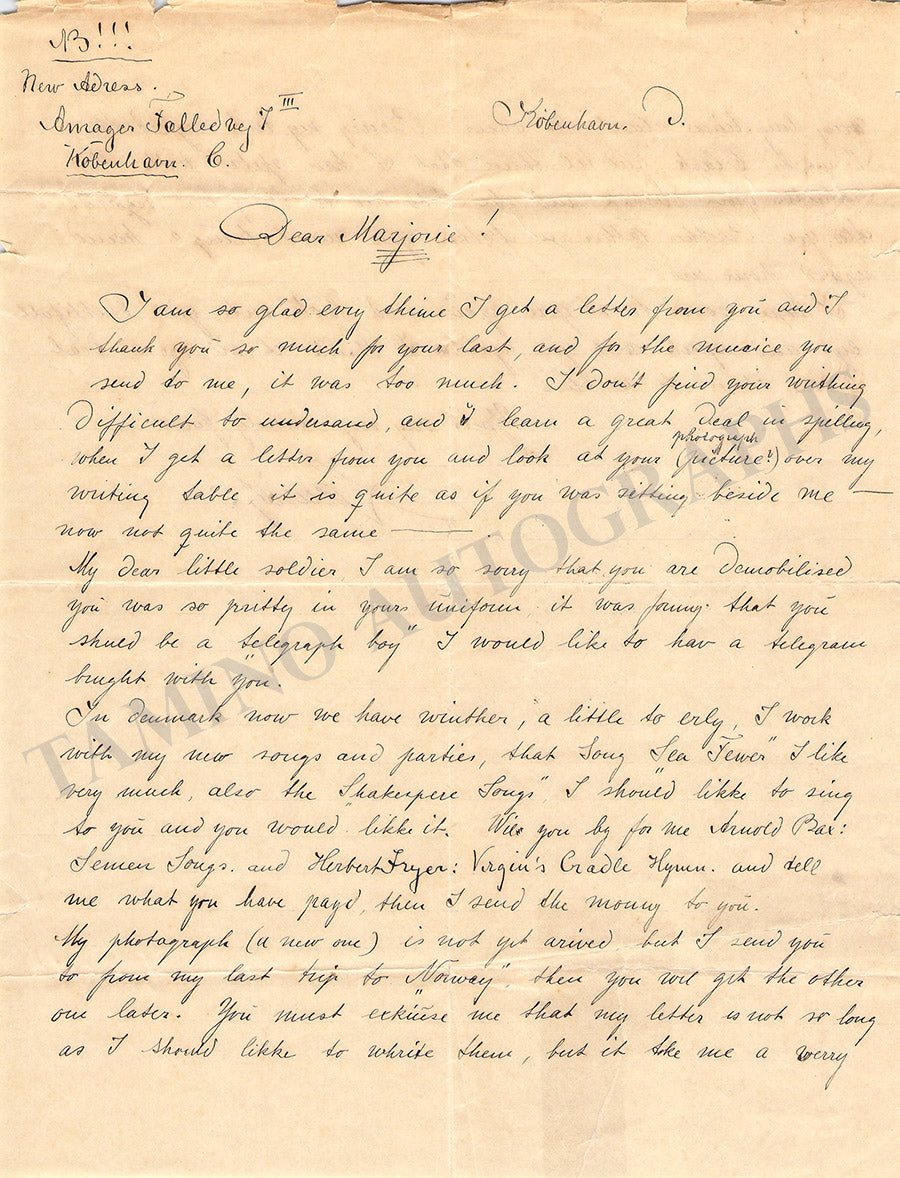 NB!!!
New Adress.
Amager Fælledvej 7 III
København. C.
København. D.
Dear Marjorie!
I am so glad evry thime I get a letter from you and I
thank you so much for your last, and for the musice you
send to me, it was too much. I don't find your writhing
difficult to undersand, and I learn a great deal in spilling,
when I get a letter from you and look at your (picture!) photograph over my
writing table, it is quite as if you was sitting beside me —
now not quite the same —
My dear little soldier, I am so sorry that you are demobilised
you was so pritty in yours uniform it was fonny that you
shuld be a "telegraph boy" I would like to hav a telegram
bright with you.
In denmark now we have winther, a little to erly, I work
with my new songs and parties, that Song "Sea Fewer" I like
very much, also the "Shakespere Songs", I should likke to sing
to you and you would likke it. Will you by for me Arnold Bax:
Semen Songs. and Herbert Fryer: Virgin's Cradle Hymn. and tell
me what you have payd, then I send the monny to you.
My photograph (a new one) is not yet arived, but I send you
to from my last trip to "Norway", then you will get the other
one later. You must exküise me that my letter is not so long
as I should likke to whrite them, but it take me a werry
TAMINO AUTOGRAPHS